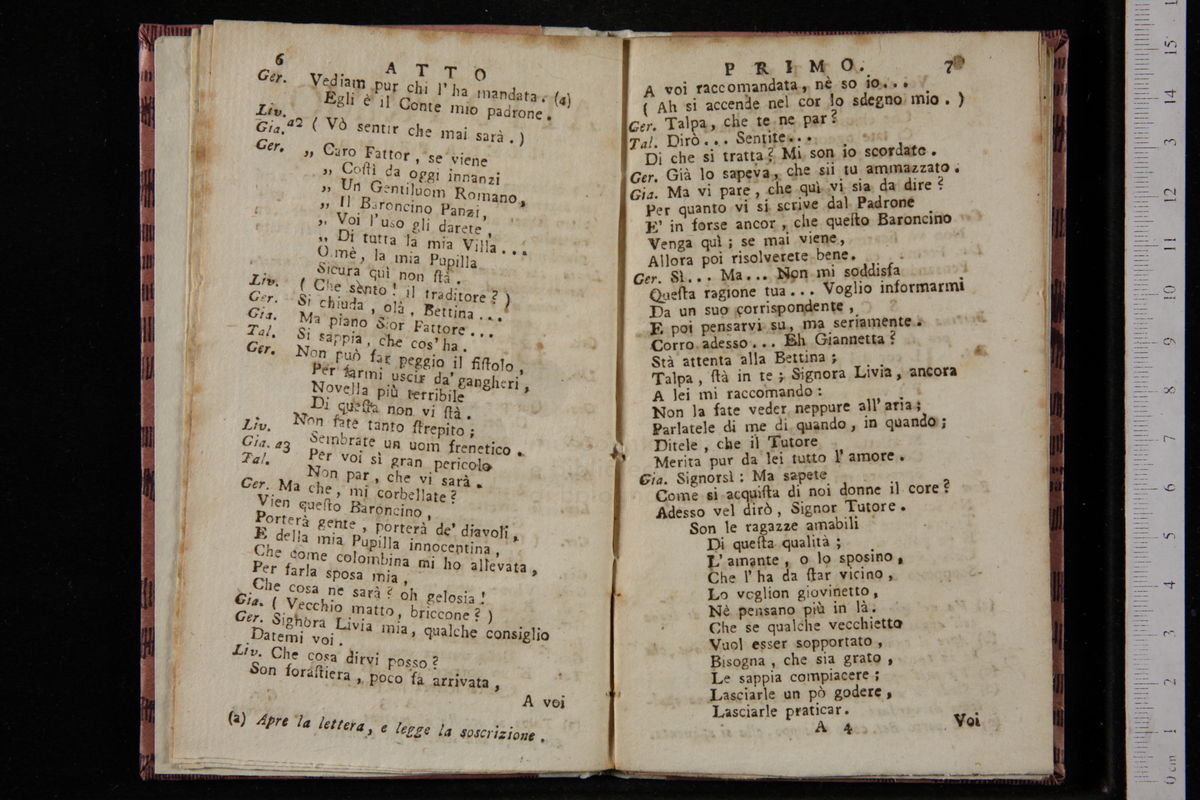 6
ATTO
Ger. Vediam pur chi l'ha mandata. (a)
Egli è il Conte mio padrone.
Liv.
Gia. a2 ( Vò sentir che mai sarà. )
Ger. „ Caro Fattor, se viene
„ Coſtì da oggi innanzi
„ Un Gentiluom Romano,
„ Il Baroncino Panzi,
„ Voi l'uso gli darete,
„ Di tutta la mia Villa...
O mè, la mia Pupilla
Sicura quì non ſtà.
Liv. ( Che sento! il traditore? )
Ger. Si chiuda, olà, Bettina...
Gia. Ma piano Sior Fattore...
Tal. Si sappia, che cos'ha.
Ger. Non può far peggio il fiſtolo,
Per farmi uscir da'gangheri,
Novella più terribile
Di queſta non vi ſtà.
Liv. Non fate tanto ſtrepito;
Gia. a3 Sembrate un uom frenetico.
Tal. Per voi sì gran pericolo
Non par, che vi sarà.
Ger. Ma che, mi corbellate?
Vien queſto Baroncino,
Porterà gente, porterà de' diavoli,
E della mia Pupilla innocentina,
Che come colombina mi ho allevata,
Per farla sposa mia,
Che cosa ne sarà? oh gelosia!
Gia. ( Vecchio matto, briccone? )
Ger. Signora Livia mia, qualche consiglio
Datemi voi.
Liv. Che cosa dirvi posso?
Son foraſtiera, poco fa arrivata,
A voi
(a) Apre la lettera, e legge la soscrizione.
PRIMO. 7
A voi raccomandata, nè so io...
( Ah si accende nel cor lo sdegno mio. )
Ger. Talpa, che te ne par?
Tal. Dirò... Sentite...
Di che si tratta? Mi son io scordato.
Ger. Già lo sapeva, che sii tu ammazzato.
Gia. Ma vi pare, che quì vi sia da dire?
Per quanto vi si scrive dal Padrone
E' in forse ancor, che queſto Baroncino
Venga quì; se mai viene,
Allora poi risolverete bene.
Ger. Sì... Ma... Non mi soddisfa
Queſta ragione tua... Voglio informarmi
Da un suo corrispondente,
E poi pensarvi su, ma seriamente.
Corro adesso... Eh Giannetta?
Stà attenta alla Bettina;
Talpa, ſtà in te; Signora Livia, ancora
A lei mi raccomando:
Non la fate veder neppure all'aria;
Parlatele di me di quando, in quando;
Ditele, che il Tutore
Merita pur da lei tutto l'amore.
Gia. Signorsì: Ma sapete
Come si acquiſta di noi donne il core?
Adesso vel dirò, Signor Tutore.
Son le ragazze amabili
Di queſta qualità;
L'amante, o lo sposino,
Che l'ha da ſtar vicino,
Lo voglion giovinetto,
Nè pensano più in là.
Che se qualche vecchietto
Vuol esser sopportato,
Bisogna, che sia grato,
Le sappia compiacere;
Lasciarle un pò godere,
Lasciarle praticar.
A 4 Voi
0 cm 1 2 3 4 5 6 7 8 9 10 11 12 13 14 15